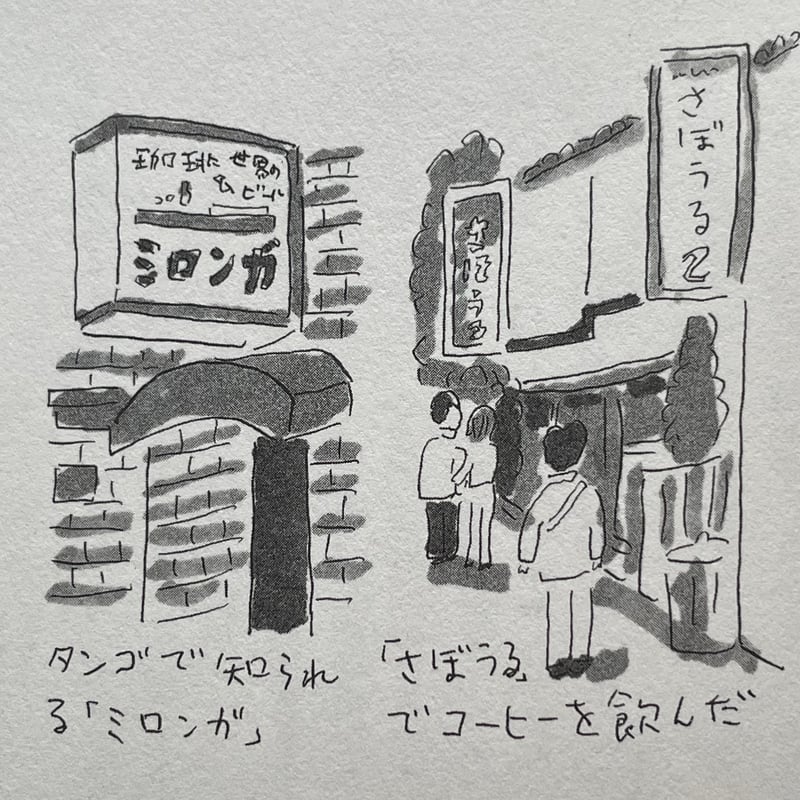 珈琲に世界の
ビール
ミロンガ
さぼうる
さぼうる2
タンゴで知られ
る「ミロンガ」
「さぼうる」
でコーヒーを飲んだ